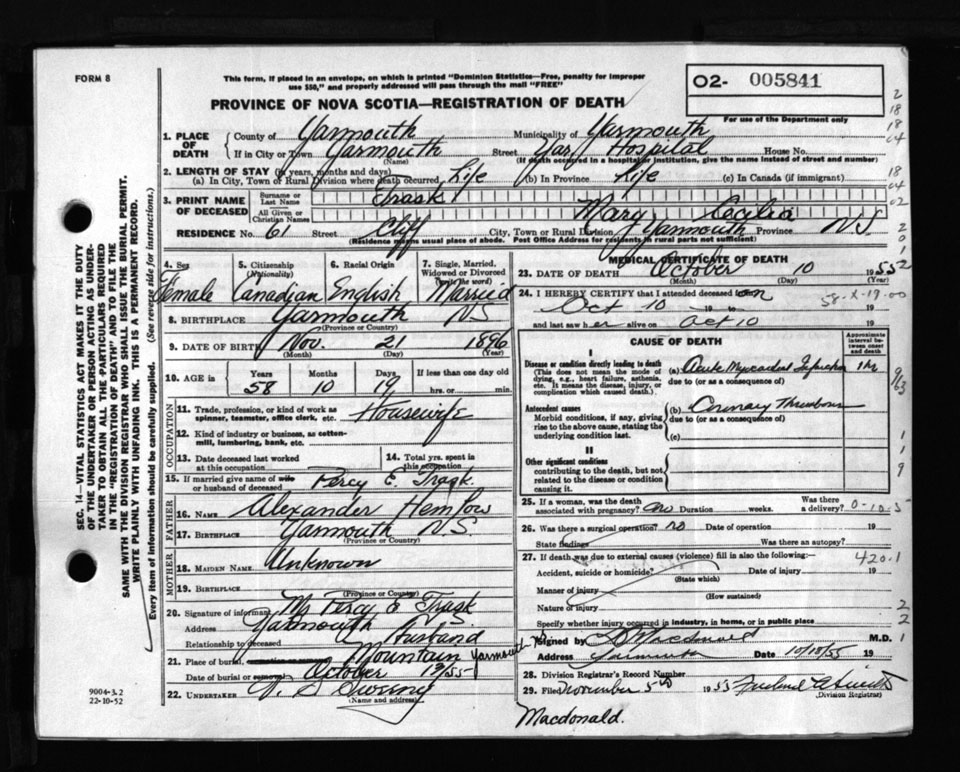 FORM 8
This form, if placed in an envelope, on which is printed "Dominion Statistics—Free, penalty for improper
use $50," and properly addressed will pass through the mail "FREE"
O2- 005841
For use of the Department only
PROVINCE OF NOVA SCOTIA—REGISTRATION OF DEATH
1. PLACE OF DEATH
County of Yarmouth Municipality of Yarmouth
If in City or Town Yarmouth Street Yar. Hospital House No.
(Name) (If death occurred in a hospital or institution, give the name instead of street and number)
2. LENGTH OF STAY (in years, months and days)
(a) In City, Town or Rural Division where death occurred Life (b) In Province Life (c) In Canada (if immigrant)
3. PRINT NAME OF DECEASED
Surname or Last Name Trask
All Given or Christian Names Mary Cecilia
RESIDENCE No. 61 Street Cliff City, Town or Rural Division Yarmouth Province N.S.
(Residence means usual place of abode. Post Office Address for residents in rural parts not sufficient)
4. Sex
Female
5. Citizenship
(Nationality)
Canadian
6. Racial Origin
English
7. Single, Married,
Widowed or Divorced
(write the word)
Married
8. BIRTHPLACE Yarmouth N.S.
(Province or Country)
9. DATE OF BIRTH Nov. 21 1896
(Month) (Day) (Year)
10. AGE in
Years Months Days If less than one day old
58 10 19 hrs. or min.
OCCUPATION
11. Trade, profession, or kind of work as
spinner, teamster, office clerk, etc. Housewife
12. Kind of industry or business, as cotton-
mill, lumbering, bank, etc.
13. Date deceased last worked
at this occupation
14. Total yrs. spent in
this occupation
15. If married give name of wife
or husband of deceased Percy E. Trask.
FATHER
16. NAME Alexander Hemlow
17. BIRTHPLACE Yarmouth N.S.
(Province or Country)
MOTHER
18. MAIDEN NAME Unknown
19. BIRTHPLACE
(Province or Country)
20. Signature of informant Mr Percy E. Trask
Address Yarmouth
Relationship to deceased Husband
21. Place of burial, Mountain Yarmouth
Date of burial or October 12/55
22. UNDERTAKER V. S. Sweeny
(Name and address)
MEDICAL CERTIFICATE OF DEATH
23. DATE OF DEATH October 10 1955
(Month) (Day) (Year)
24. I HEREBY CERTIFY that I attended deceased on
58-X-19-00
Oct 10 19 to 19
and last saw her alive on Oct 10 19
CAUSE OF DEATH
Approximate interval between onset and death
I
Disease or condition directly leading to death
(This does not mean the mode of
dying, e.g., heart failure, asthenia,
etc. It means the disease, injury, or
complication which caused death.)
(a) Acute Myocardial Infarction
due to (or as a consequence of)
Antecedent causes
Morbid conditions, if any, giving
rise to the above cause, stating the
underlying condition last.
(b) Coronary Thrombosis
due to (or as a consequence of)
(c)
II
Other significant conditions
contributing to the death, but not
related to the disease or condition
causing it.
25. If a woman, was the death
associated with pregnancy? no Duration weeks. Was there
a delivery? 0-10-5
26. Was there a surgical operation? no Date of operation 19
State findings Was there an autopsy?
27. If death was due to external causes (violence) fill in also the following:—
420.1
Accident, suicide or homicide? Date of injury 19
(State which)
Manner of injury
(How sustained)
Nature of injury
Specify whether injury occurred in industry, in home, or in public place
Signed by D Macdonald M.D.
Address Yarmouth Date 10/18/55 19
28. Division Registrar's Record Number
29. Filed November 5th 1955
(Division Registrar)
Macdonald.
9004-3.2
22-10-52
SEC. 14—VITAL STATISTICS ACT MAKES IT THE DUTY
OF THE UNDERTAKER OR PERSON ACTING AS UNDER-
TAKER TO OBTAIN ALL THE PARTICULARS REQUIRED
IN THE "REGISTRATION OF DEATH" AND TO FILE THE
SAME WITH THE DIVISION REGISTRAR WHO SHALL ISSUE THE BURIAL PERMIT.
WRITE PLAINLY WITH UNFADING INK. THIS IS A PERMANENT RECORD.
Every item of information should be carefully supplied. (See reverse side for instructions.)
2
18
18
04
18
04
02
2
0
1
2
9/63
1
1
9
2
2
1